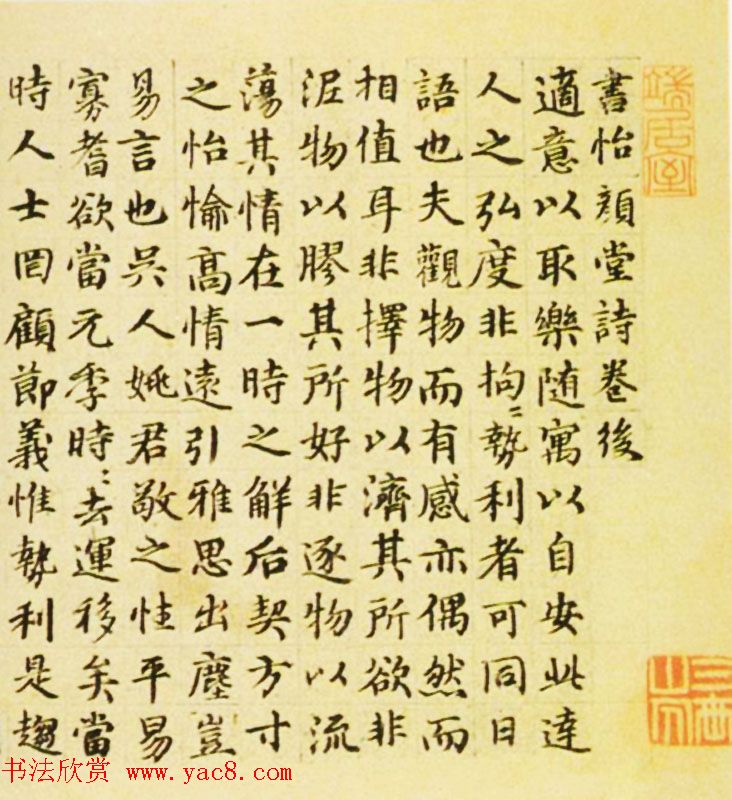 書怡顏堂詩卷後
適意以取樂随寓以自安此達
人之弘度非拘〻勢利者可同日
語也夫觀物而有感亦偶然而
相值耳非擇物以濟其所欲非
泥物以膠其所好非逐物以流
蕩其情在一時之解后契方寸
之怡愉高情遠引雅思出塵豈
易言也吳人姚君敬之性平易
寡耆欲當元季時〻去運移矣當
時人士罔顧節義惟勢利是趨
端居室
书法欣赏 www.yac8.com